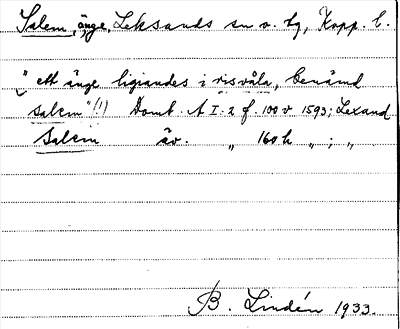 Salem, änge, Leksands sn o. tg, Kopp. l.
"ett änge ligiandes i risvåla, benämd
salem" (!) Domb. A I: 2 f. 100 v 1593; Lexand
Salem äv. „ 160 h „ ; „
B. Lindén 1933.